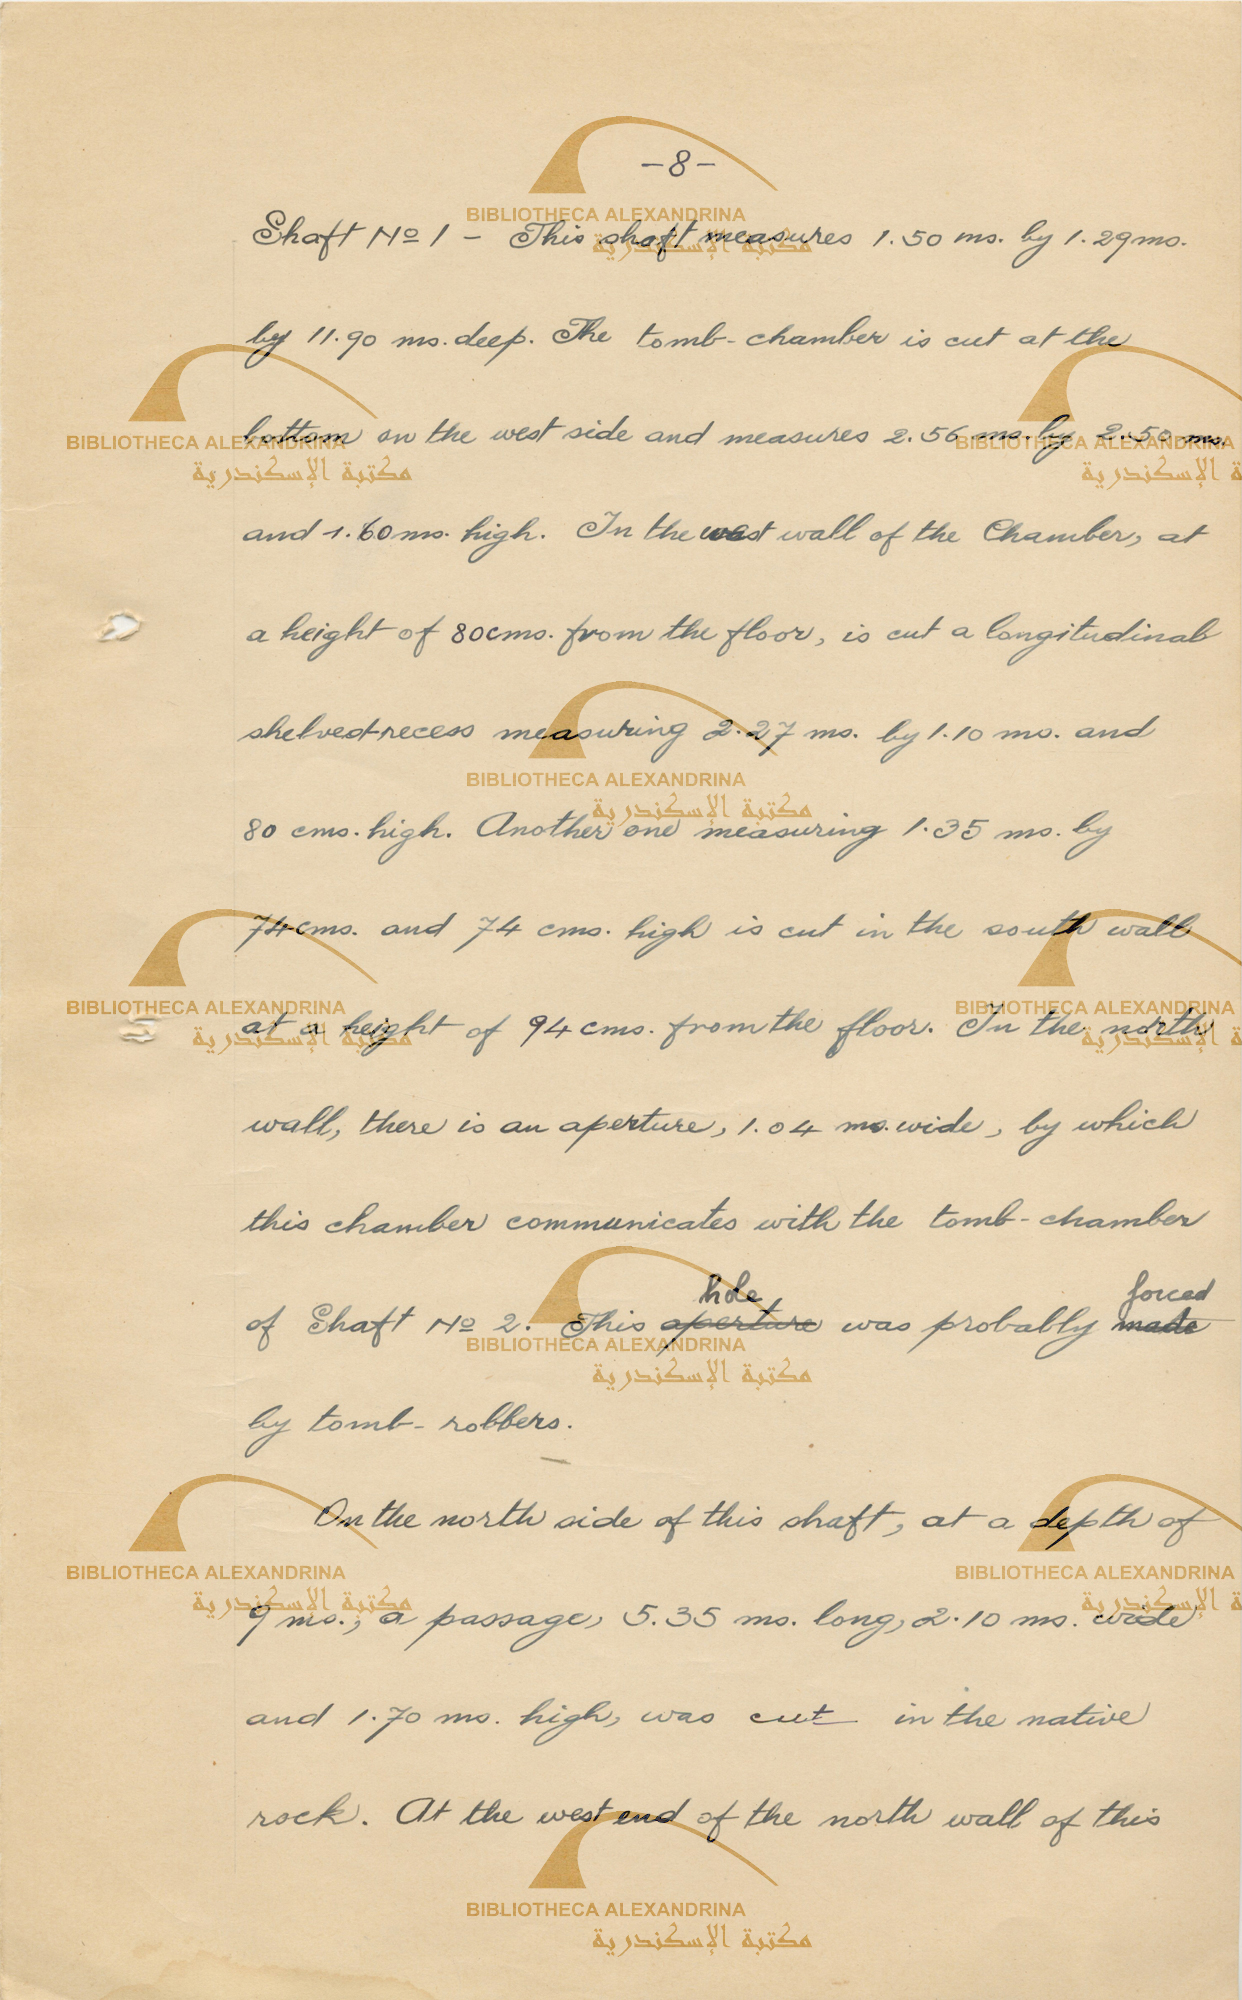 -8-
Shaft No 1 - This shaft measures 1.50 ms. by 1.29 ms.
by 11.90 ms. deep. The tomb-chamber is cut at the
bottom on the west side and measures 2.56 ms. by 2.50 ms.
and 1.60 ms. high. In the west wall of the Chamber, at
a height of 80 cms. from the floor, is cut a longitudinal
shelved-recess measuring 2.27 ms. by 1.10 ms. and
80 cms. high. Another one measuring 1.35 ms. by
74 cms. and 74 cms. high is cut in the south wall
at a height of 94 cms. from the floor. In the north
wall, there is an aperture, 1.04 ms. wide, by which
this chamber communicates with the tomb-chamber
hole forced
of Shaft No 2. This aperture was probably made
by tomb-robbers.
On the north side of this shaft, at a depth of
9 ms., a passage, 5.35 ms. long, 2.10 ms. wide
and 1.70 ms. high, was cut in the native
rock. At the west end of the north wall of this
BIBLIOTHECA ALEXANDRINA
مكتبة الإسكندرية